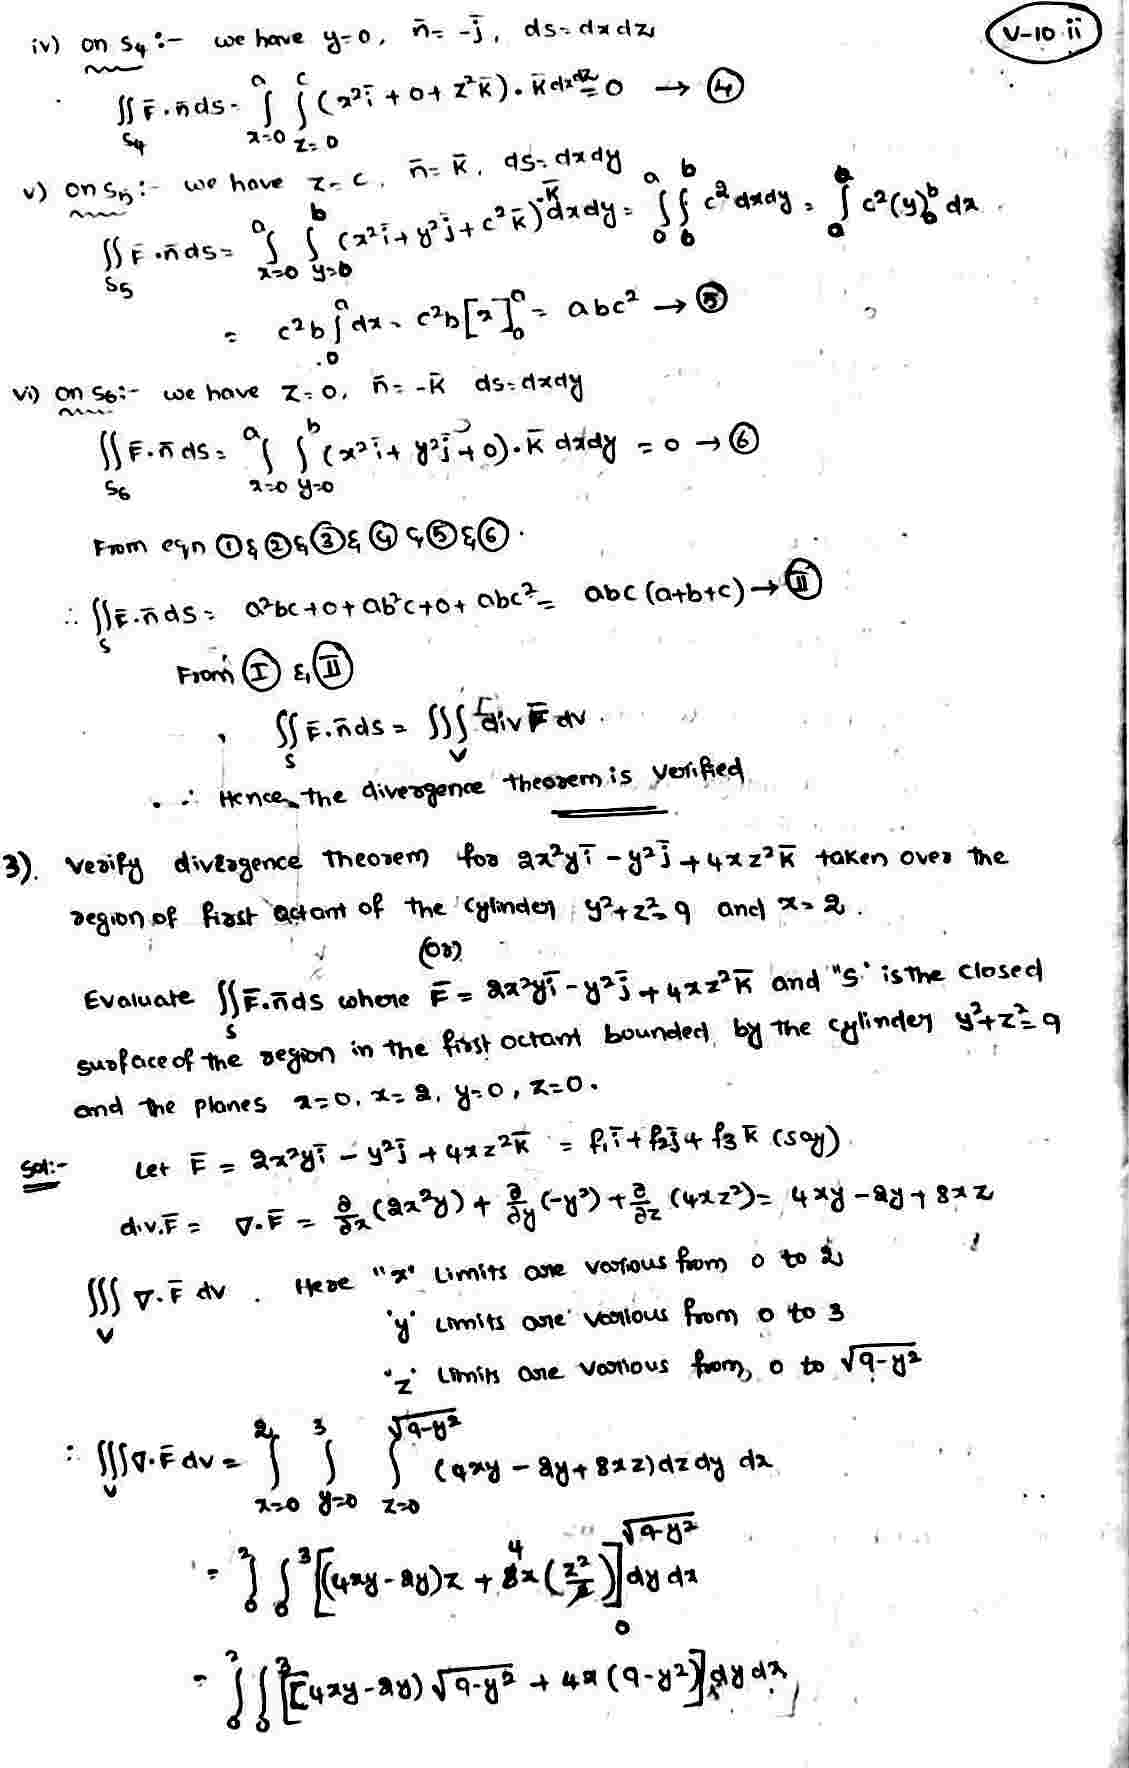 V-10 ii
iv) on S₄ :- we have y=0, n̄= -j̄, ds= dxdz
∬_{S₄} F̄.n̄ds = ∫_{x=0}^{a} ∫_{z=0}^{c} (x²ī + 0 + z²k̄).k̄ dxdz = 0 → ④
v) on S₅ :- we have z=c, n̄= k̄, ds=dxdy
∬_{S₅} F̄.n̄ds = ∫_{x=0}^{a} ∫_{y=0}^{b} (x²ī + y²j̄ + c²k̄).k̄ dxdy = ∫_{0}^{a} ∫_{0}^{b} c² dxdy = ∫_{a}^{0} c²(y)_{0}^{b} dx.
= c²b ∫_{0}^{a} dx = c²b [x]_{0}^{a} = abc² → ⑤
vi) on S₆:- we have z=0, n̄= -k̄ ds=dxdy
∬_{S₆} F̄.n̄ ds = ∫_{x=0}^{a} ∫_{y=0}^{b} (x²ī + y²j̄ + 0).k̄ dxdy = 0 → ⑥
From eqn ① & ② & ③ & ④ & ⑤ & ⑥.
∴ ∬_{S} F̄.n̄ ds = a²bc + 0 + ab²c + 0 + abc² = abc (a+b+c) → Ⅱ
From Ⅰ & Ⅱ
∬_{S} F̄.n̄ds = ∭_{V} div F̄ dv.
∴ Hence, the divergence theorem is verified
3). Verify divergence Theorem for 2x²yī - y²j̄ + 4xz²k̄ taken over the
region of first octant of the cylinder y²+z²=9 and x=2.
(or)
Evaluate ∬_{S} F̄.n̄ds where F̄ = 2x²yī - y²j̄ + 4xz²k̄ and "S" is the closed
surface of the region in the first octant bounded by the cylinder y²+z²=9
and the planes x=0, x=2, y=0, z=0.
Sol:- Let F̄ = 2x²yī - y²j̄ + 4xz²k̄ = f₁ī + f₂j̄ + f₃k̄ (say)
div.F̄ = ∇.F̄ = ∂/∂x (2x²y) + ∂/∂y (-y²) + ∂/∂z (4xz²) = 4xy - 2y + 8xz
∭_{V} ∇.F̄ dv. Here "x" Limits are various from 0 to 2
'y' Limits are various from 0 to 3
'z' Limits are various from, 0 to √(9-y²)
∴ ∭_{V} ∇.F̄ dv = ∫_{x=0}^{2} ∫_{y=0}^{3} ∫_{z=0}^{√(9-y²)} (4xy - 2y + 8xz) dz dy dx
= ∫_{0}^{2} ∫_{0}^{3} [(4xy-2y)z + 8x (z²/2)]_{0}^{√(9-y²)} dy dx
= ∫_{0}^{2} ∫_{0}^{3} [(4xy-2y) √(9-y²) + 4x (9-y²)] dy dx